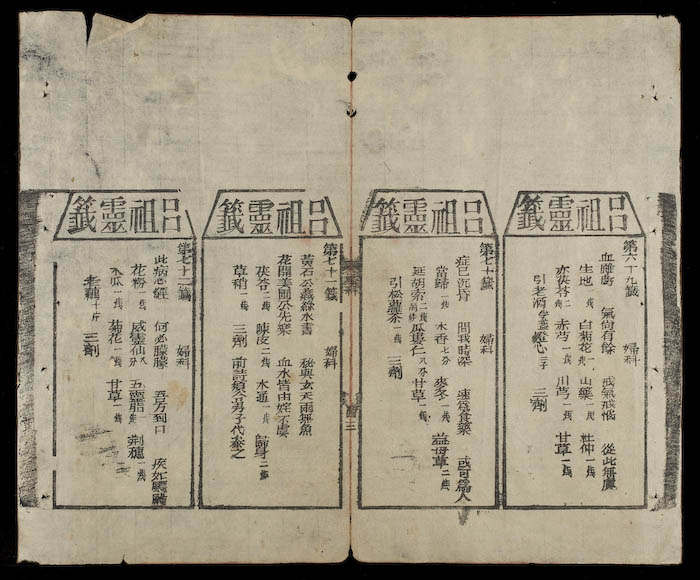 呂祖靈籤
第六十九籤 婦科
血雖虧 氣尚有餘 戒氣戒惱 從此無虞
生地一錢 白菊花一錢 山藥一錢 杜仲一錢
亦茯苓二錢 赤芍一錢 川芎一錢 甘草一錢
引老酒 燈心 三劑
呂祖靈籤
第七十籤 婦科
症已沉疴 問我時深 速為食藥 或可為人
當歸一錢 木香七分 麥冬一錢 益母草一錢
延胡索二錢 瓜蔞仁 甘草一錢
引松蘿茶一錢 三劑
呂祖靈籤
第七十一籤 婦科
黃石公藏綠水書 秘與玄天雨無魚
花開美園公先樂 血水皆由妊子虞
茯苓二錢 陳皮二錢 木通一錢 歸身二錢
草梢一錢 三劑 前詩須令男子代參之
呂祖靈籤
第七十二籤 婦科
此病亦輕 何必朦朦 吾方到口 疾如飄飄
花粉一錢 威靈仙 五靈脂一錢 荊穗一錢
木瓜一錢 菊花一錢 甘草一錢
老藕一斤 三劑